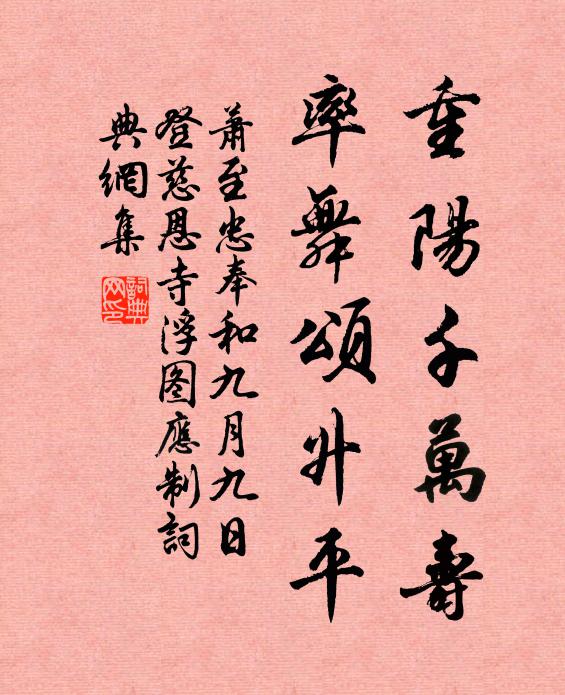 重陽千萬壽
率舞頌升平
蕭至忠奉和九月九日
登慈恩寺浮图應制詞
典網集
詞典網印